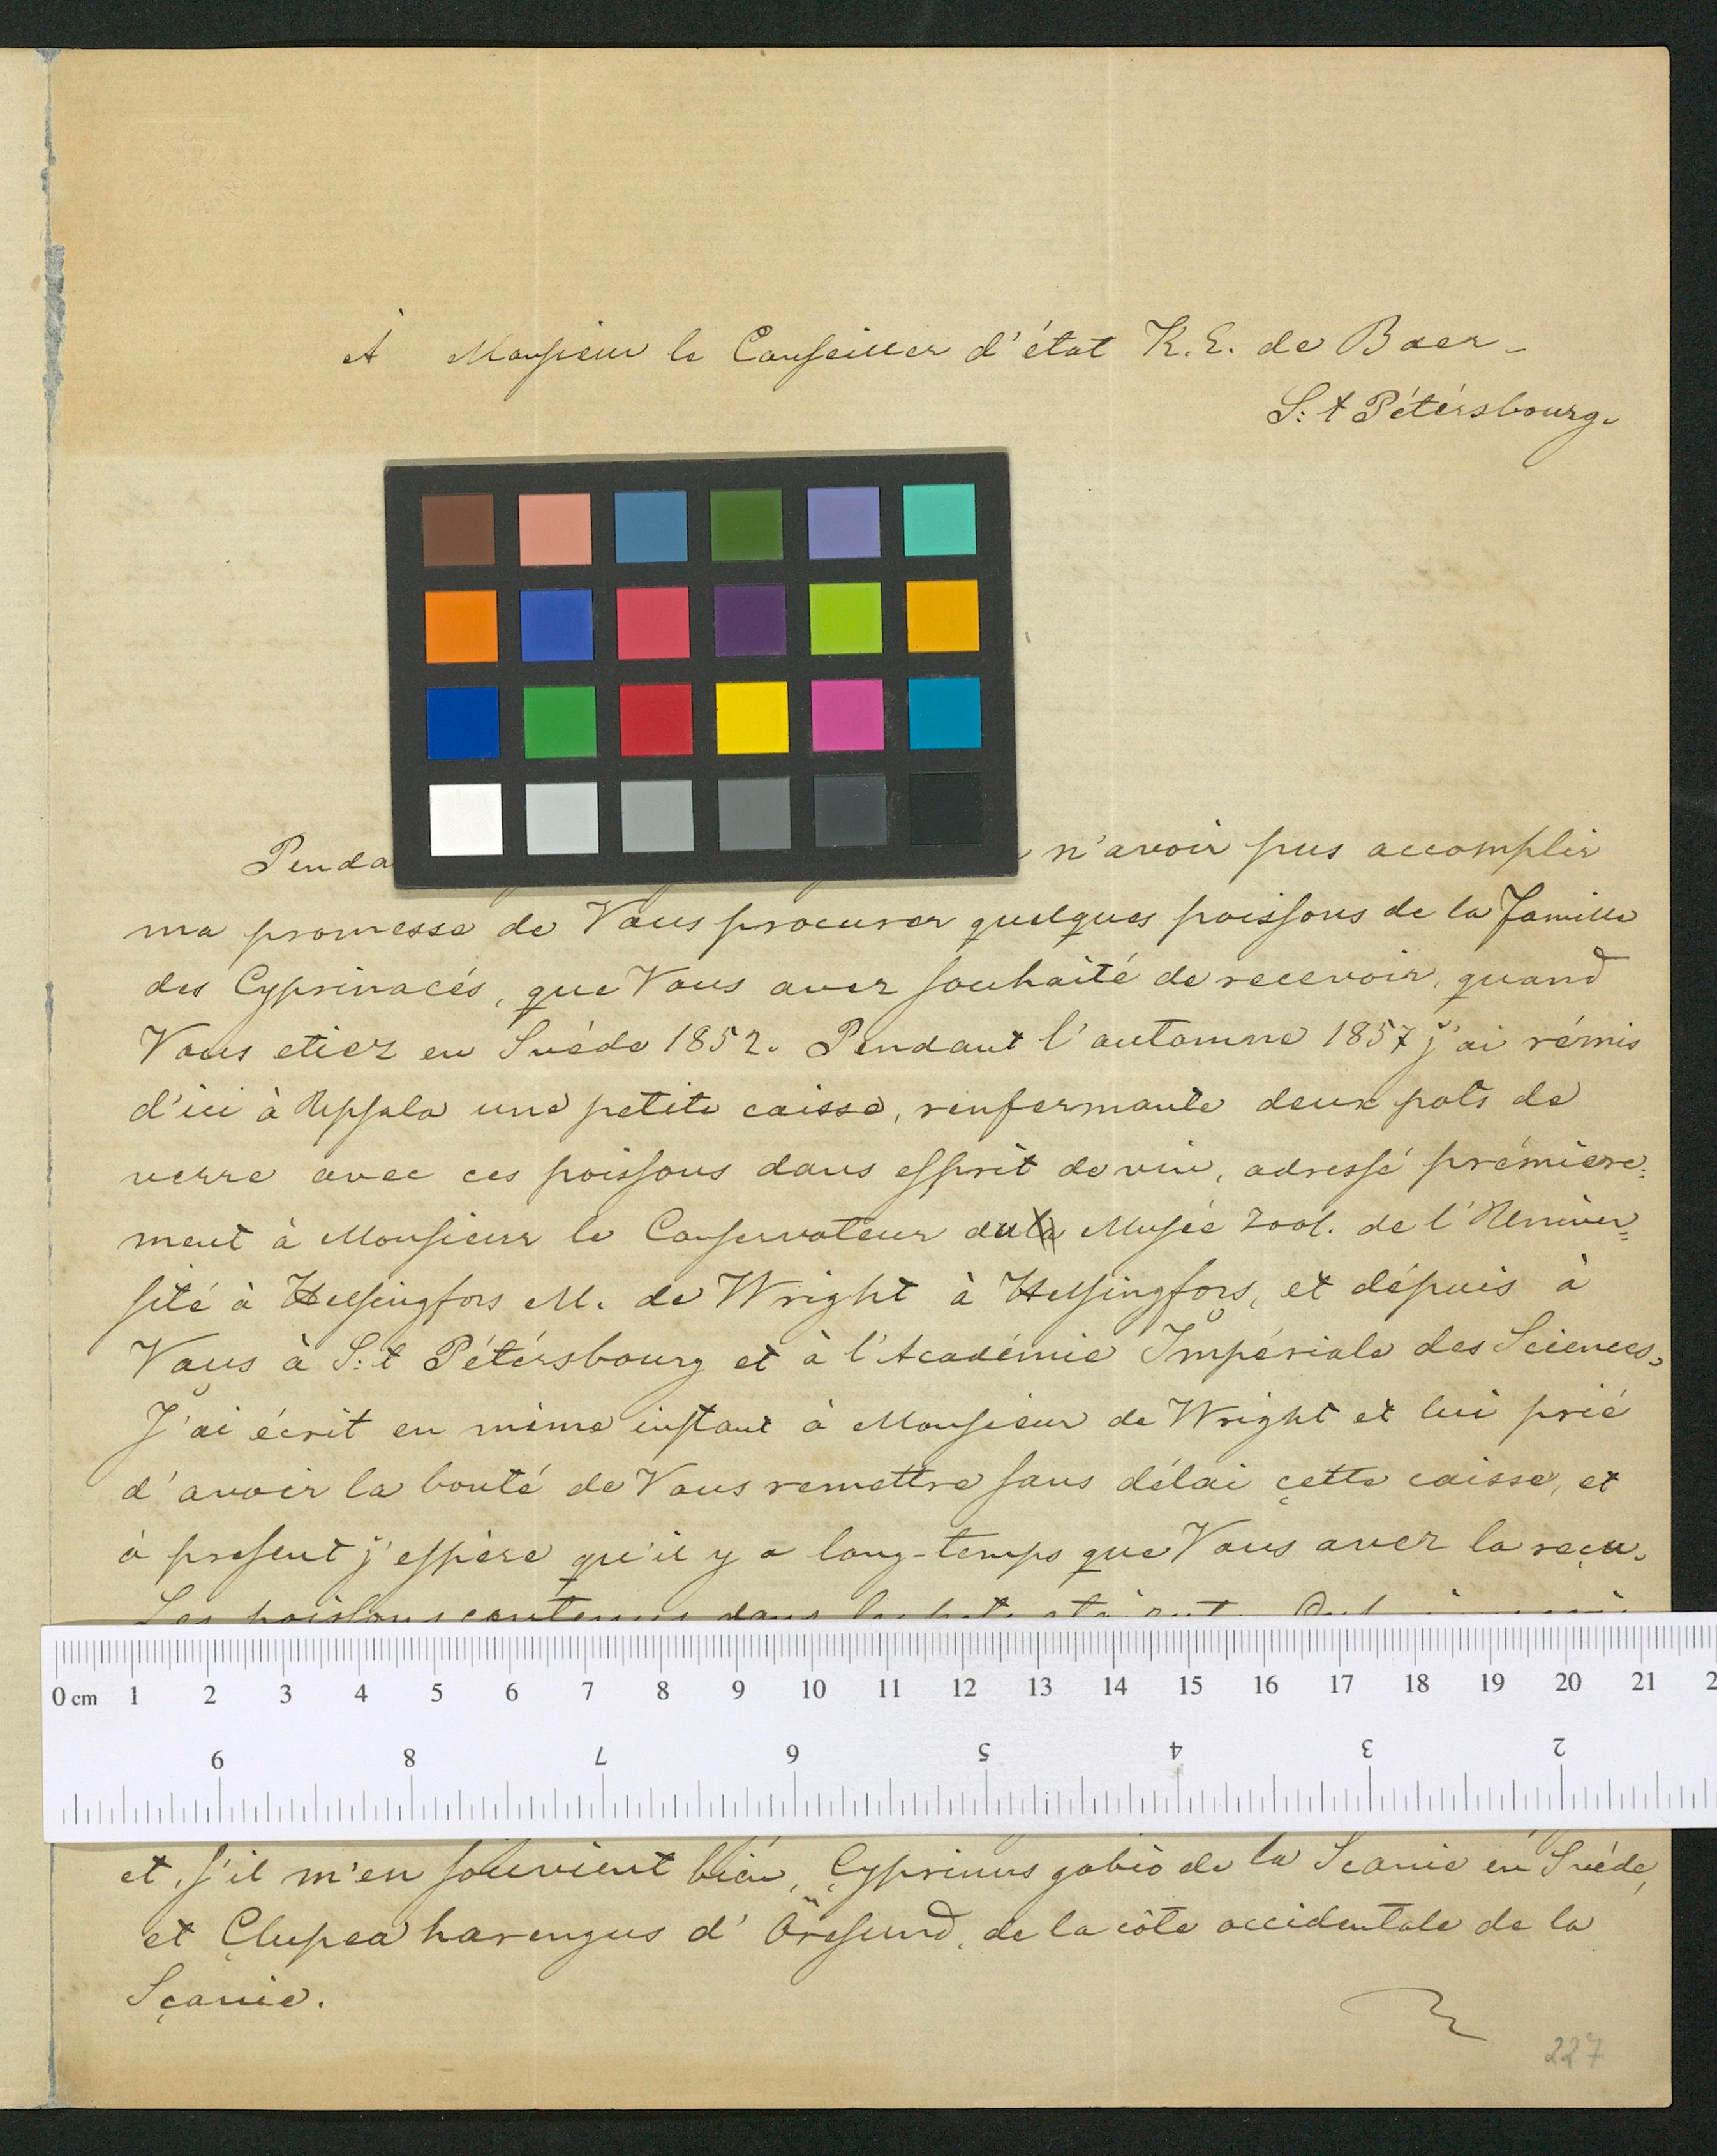 À Monsieur le Conseiller d'état K. E. de Baer.
S:t Pétérsbourg.
Penda
n'avoir pus accomplir
ma promesse de Vous procurer quelques poissons de la famille
des Cyprinacés, que Vous avez souhaité de recevoir, quand
Vous etiez en Suède 1852. Pendant l'automne 1857 j'ai rémis
d'ici à Upsala une petite caisse, renfermante deux pots de
verre avec ces poissons dans esprit de vin, adressé prémière-
ment à Monsieur le Conservateur du Musée Zool. de l'Univer=
sité à Helsingfors M. de Wright à Helsingfors, et dépuis à
Vous à S:t Pétérsbourg et à l'Académie Impériale des Sciences.
J'ai écrit en même instant à Monsieur de Wright et lui prié
d'avoir la bonté de Vous remettre sans délai cette caisse, et
à present j'espère qu'il y a long-temps que Vous avez la reçu.
Les poissons contenus dans les pots etaient
0 cm 1 2 3 4 5 6 7 8 9 10 11 12 13 14 15 16 17 18 19 20 21 2
9 8 7 6 5 4 3 2
et, s'il m'en souvient bien, Cyprinus gobio de la Scanie en Suède,
et Clupea harengus d'Öresund, de la côte occidentale de la
Scanie.
227